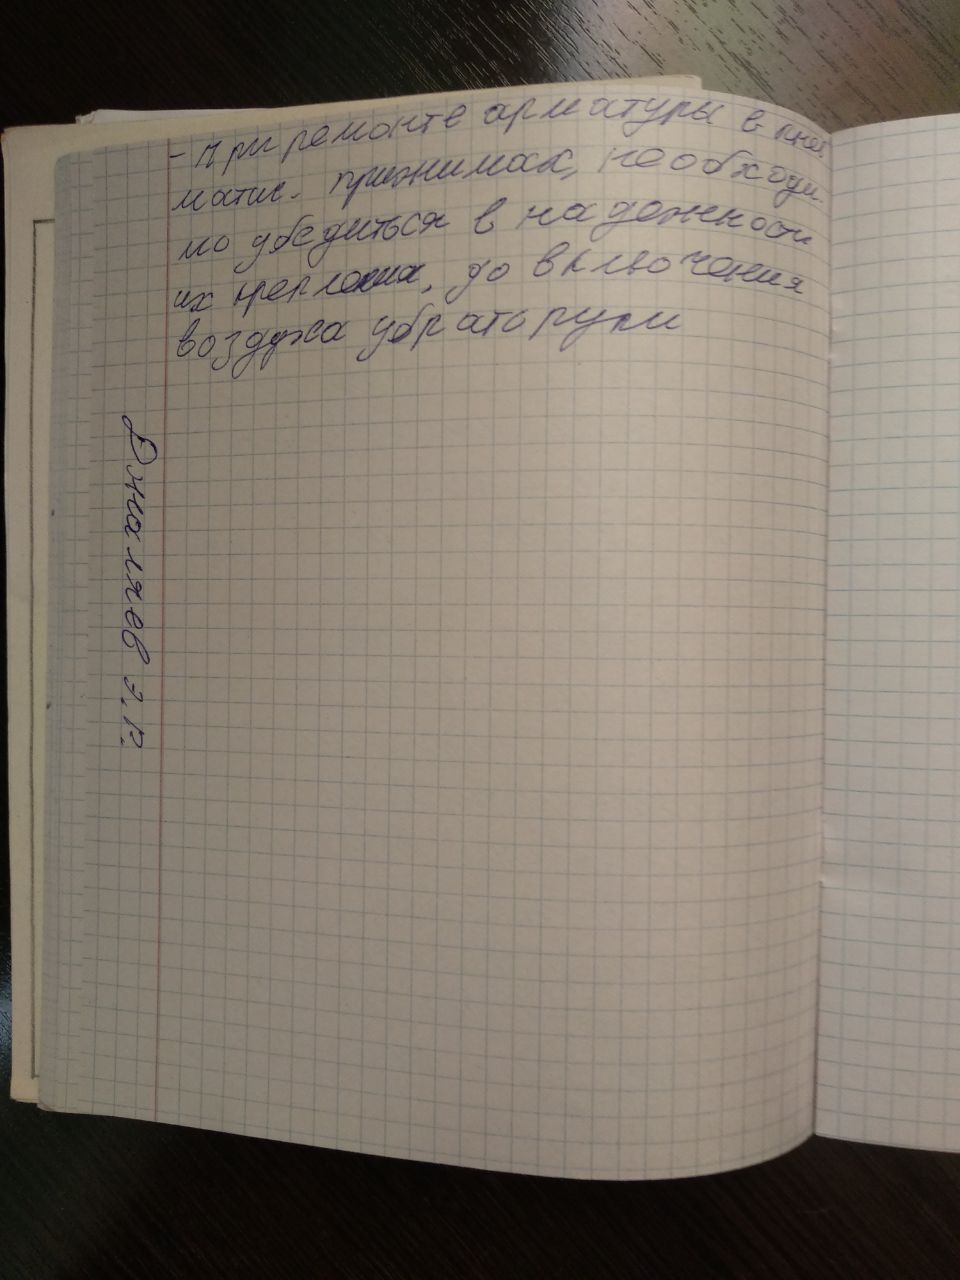 - При ремонте арматуры в пнев
матич. прижимах, необходи
мо убедиться в надежности
их крепления, до включения
воздуха убрать руки
Джаляев Э.Р.